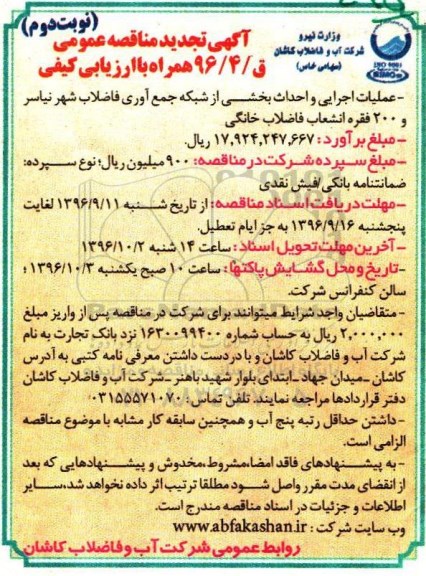 (نوبت دوم)
وزارت نیرو
شرکت آب و فاضلاب کاشان
(سهامی خاص)
ISO 9001
آگهی تجدید مناقصه عمومی
ق/۹۶/۴ همراه با ارزیابی کیفی
-عملیات اجرایی و احداث بخشی از شبکه جمع آوری فاضلاب شهر نیاسر
و ۲۰۰ فقره انشعاب فاضلاب خانگی
-مبلغ برآورد: ۱۷,۹۲۴,۲۴۷,۶۶۷ ریال.
-مبلغ سپرده شرکت در مناقصه: ۹۰۰ میلیون ریال؛ نوع سپرده:
ضمانتنامه بانکی/فیش نقدی
-مهلت دریافت اسناد مناقصه: از تاریخ شنبه ۱۳۹۶/۹/۱۱ لغایت
پنجشنبه ۱۳۹۶/۹/۱۶ به جز ایام تعطیل.
-آخرین مهلت تحویل اسناد: ساعت ۱۴ شنبه ۱۳۹۶/۱۰/۲
-تاریخ و محل گشایش پاکتها: ساعت ۱۰ صبح یکشنبه ۱۳۹۶/۱۰/۳؛
سالن کنفرانس شرکت.
-متقاضیان واجد شرایط میتوانند برای شرکت در مناقصه پس از واریز مبلغ
۲,۰۰۰,۰۰۰ ریال به حساب شماره ۱۶۳۰۰۹۹۴۰۰ نزد بانک تجارت به نام
شرکت آب و فاضلاب کاشان و با در دست داشتن معرفی نامه کتبی به آدرس
کاشان -میدان جهاد-ابتدای بلوار شهید باهنر -شرکت آب و فاضلاب کاشان
دفتر قراردادها مراجعه نمایند. تلفن تماس: ۰۳۱۵۵۵۷۱۰۷۰
-داشتن حداقل رتبه پنج آب و همچنین سابقه کار مشابه با موضوع مناقصه
الزامی است.
-به پیشنهادهای فاقد امضا، مشروط، مخدوش و پیشنهادهایی که بعد
از انقضای مدت مقرر واصل شود مطلقا ترتیب اثر داده نخواهد شد، سایر
اطلاعات و جزئیات در اسناد مناقصه مندرج است.
وب سایت شرکت: www.abfakashan.ir
روابط عمومی شرکت آب و فاضلاب کاشان